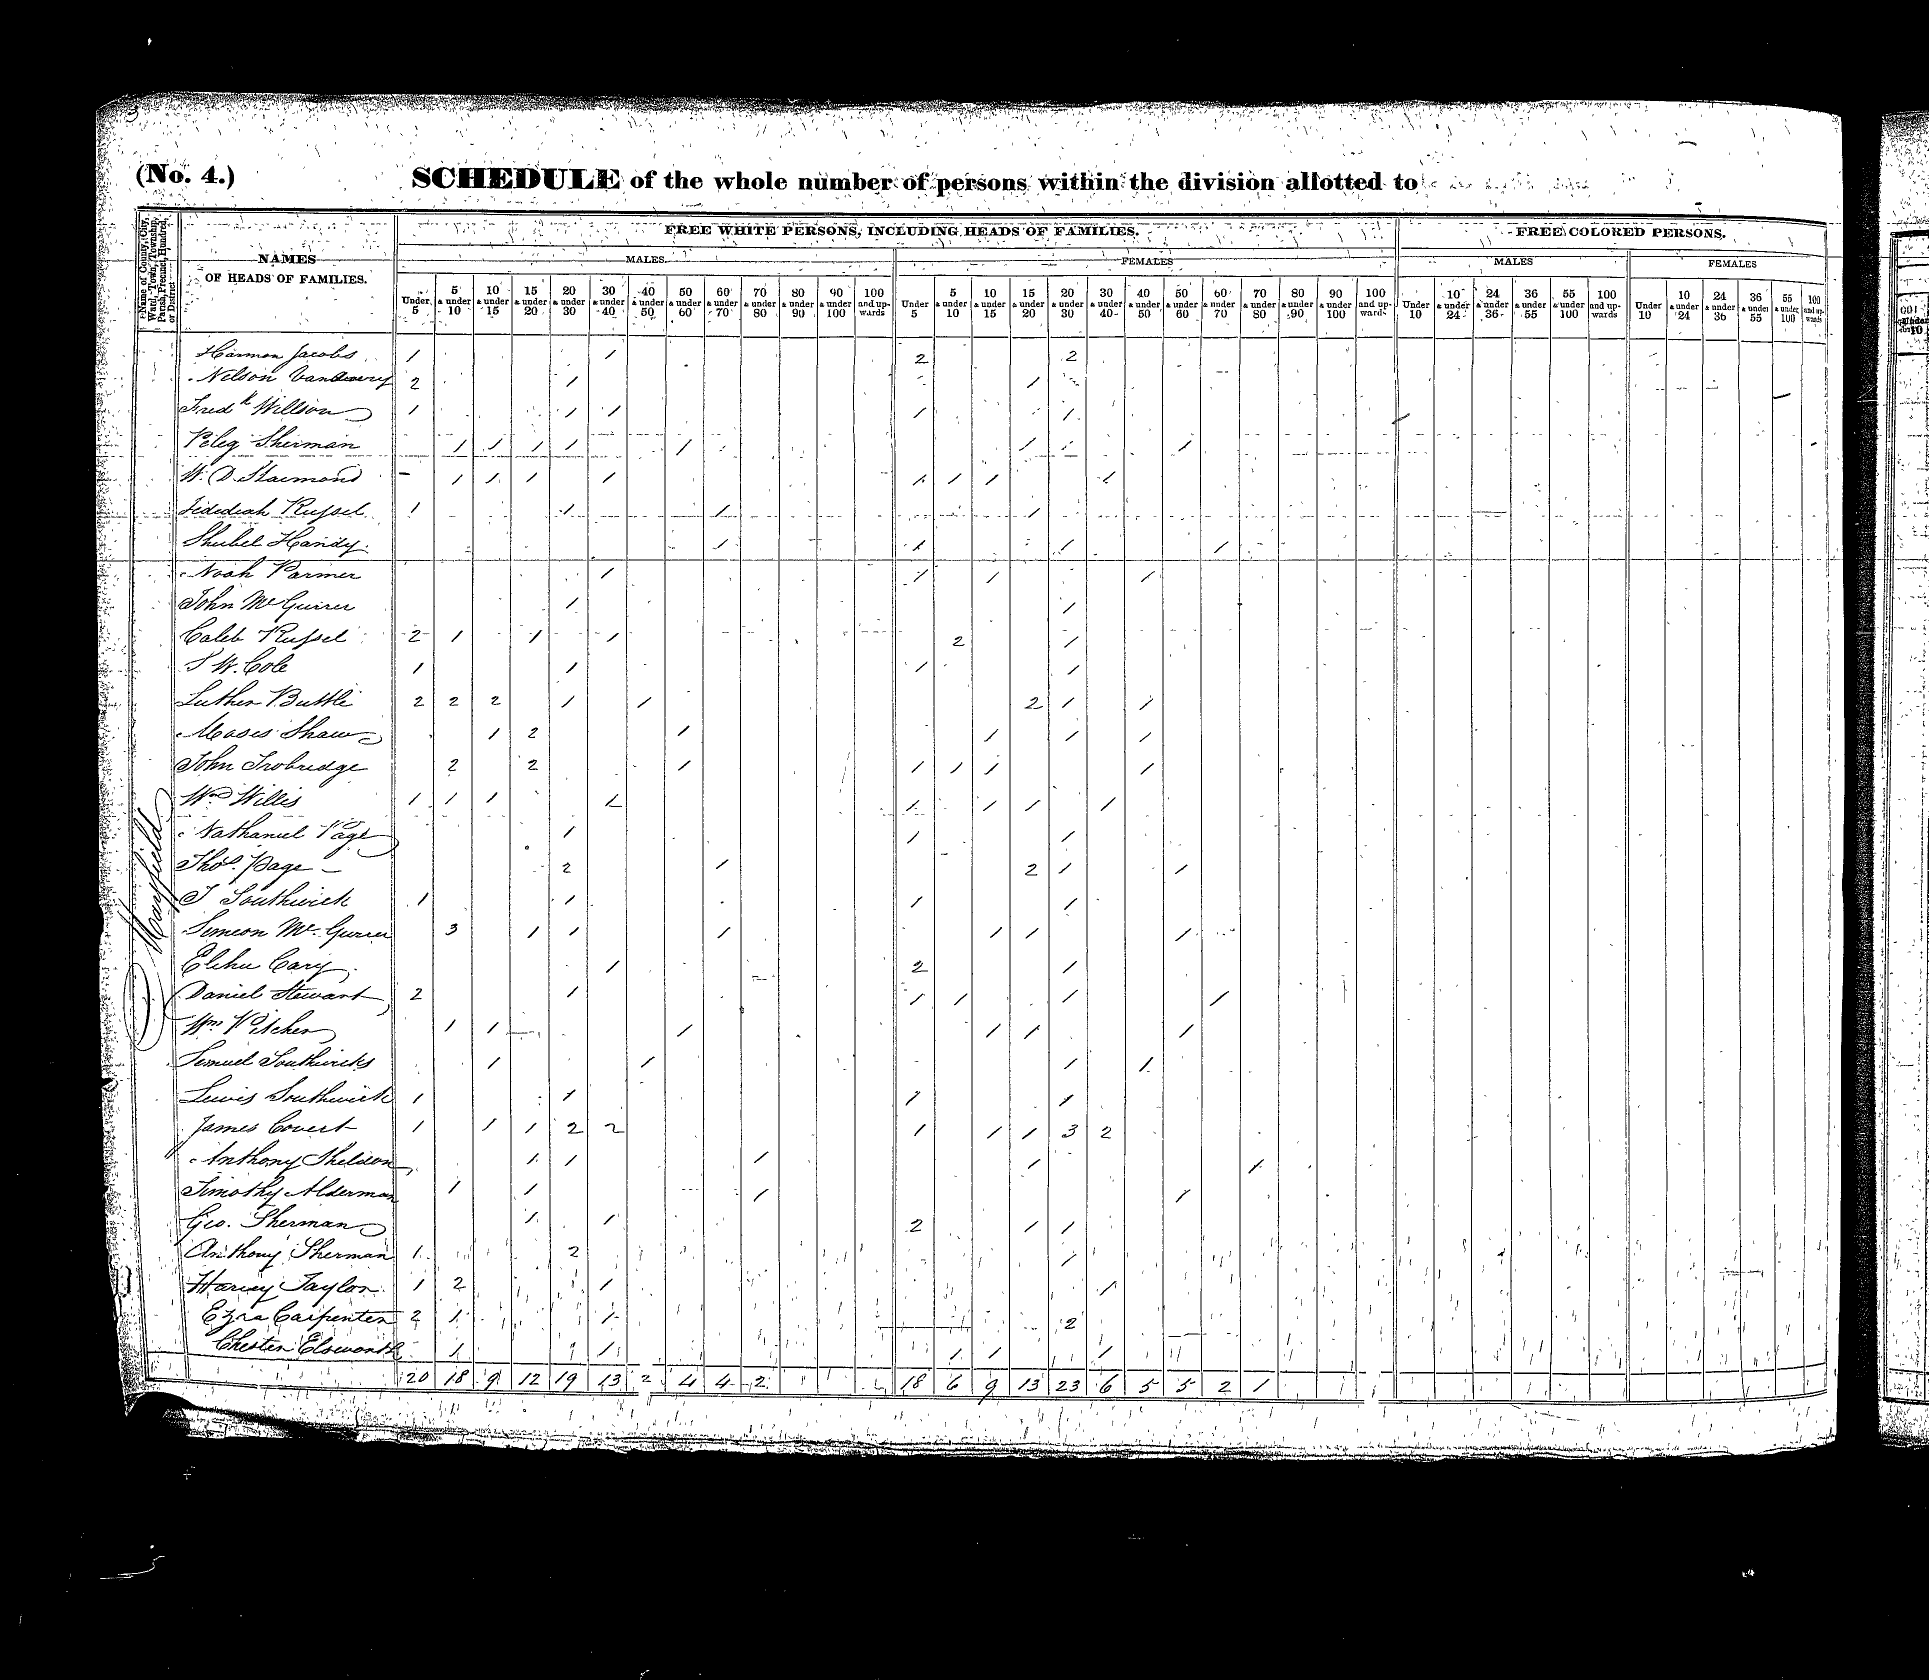 3
(No. 4.) SCHEDULE of the whole number of persons within the division allotted to
Name of County, City, Ward, Town, Township, Parish, Precinct, Hundred, or District
NAMES OF HEADS OF FAMILIES.
FREE WHITE PERSONS, INCLUDING HEADS OF FAMILIES.
FREE COLORED PERSONS.
MALES FEMALES MALES FEMALES
Under 5 5 & under 10 10 & under 15 15 & under 20 20 & under 30 30 & under 40 40 & under 50 50 & under 60 60 & under 70 70 & under 80 80 & under 90 90 & under 100 100 and upwards Under 5 5 & under 10 10 & under 15 15 & under 20 20 & under 30 30 & under 40 40 & under 50 50 & under 60 60 & under 70 70 & under 80 80 & under 90 90 & under 100 100 and upwards Under 10 10 & under 24 24 & under 36 36 & under 55 55 & under 100 100 and upwards Under 10 10 & under 24 24 & under 36 36 & under 55 55 & under 100 100 and upwards
Mayfield
Harmon Jacobs 1 1 2 2
Nelson 2 1 1
Fredk Willson 1 1 1 1 1
Peleg Sherman 1 1 1 1 1 1 1 1
W. D. 1 1 1 1 1 1 1 1
Jedediah Russel 1 1 1 1
Shubel Handy 1 1 1 1
Noah Parmer 1 1 1 1
John McGuirer 1 1
Caleb Russel 2 1 1 1 2 1
W. Cole 1 1 1 1
Luther Buttle 2 2 2 1 1 2 1 1
Moses Shaw 1 2 1 1 1 1
John Trobridge 2 2 1 1 1 1 1
Wm Willis 1 1 1 1 1 1 1 1
Nathaniel Page 1 1 1
Thos. Page 2 1 2 1 1
Southwick 1 1 1 1
Simeon Mc. 3 1 1 1 1 1 1
Elihu Cary 1 2 1
Daniel Stewart 2 1 1 1 1 1
Wm Pitcher 1 1 1 1 1 1
Lemuel Southwicks 1 1 1 1
Lewis Southwick 1 1 1 1
James Covert 1 1 1 2 2 1 1 1 3 2
Anthony Sheldon 1 1 1 1 1
Timothy Alderman 1 1 1 1
Geo. Sherman 1 1 2 1 1
Anthony Sherman 1 2 1
Harvey Taylor 1 2 1 1
Ezra Carpenter 2 1 1 2
Chester Elsworth 1 1 1 1 1
20 18 9 12 19 13 2 4 4 2 18 6 9 13 23 6 5 5 2 1